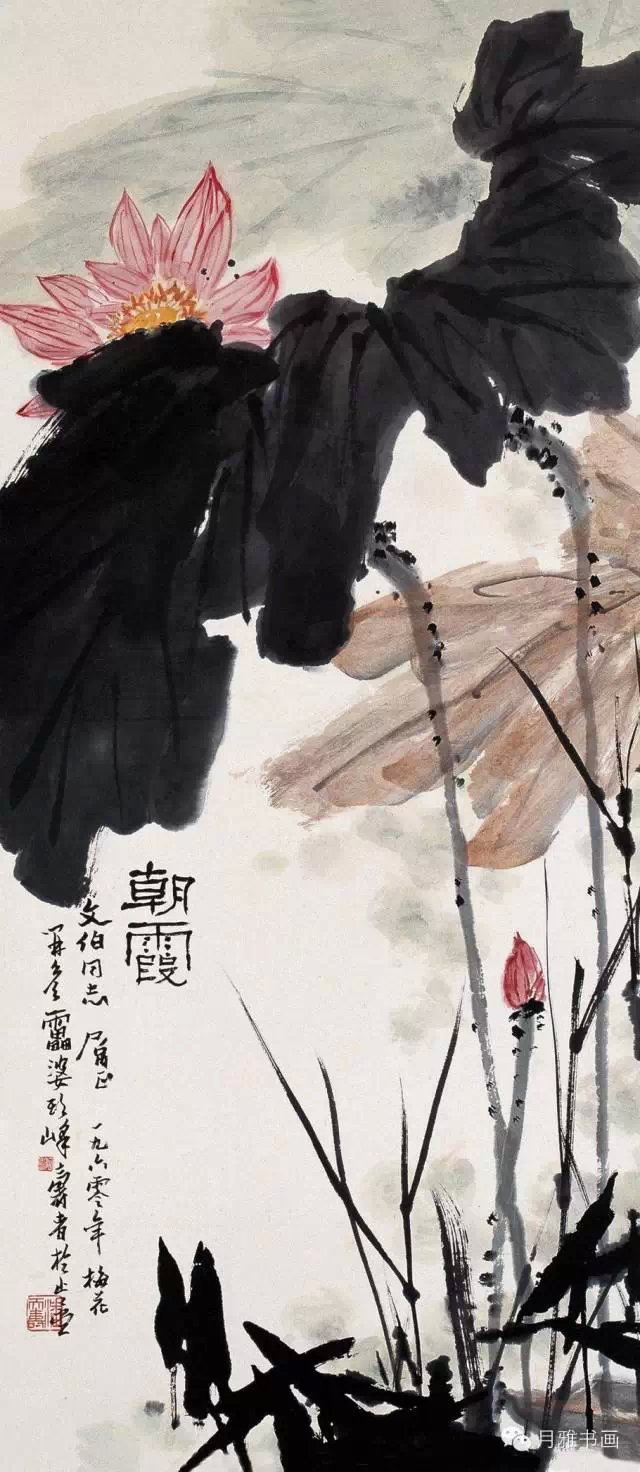 朝霞
文伯同志属正 一九六零年 梅花
靁婆头峰寿者於
月雅书画